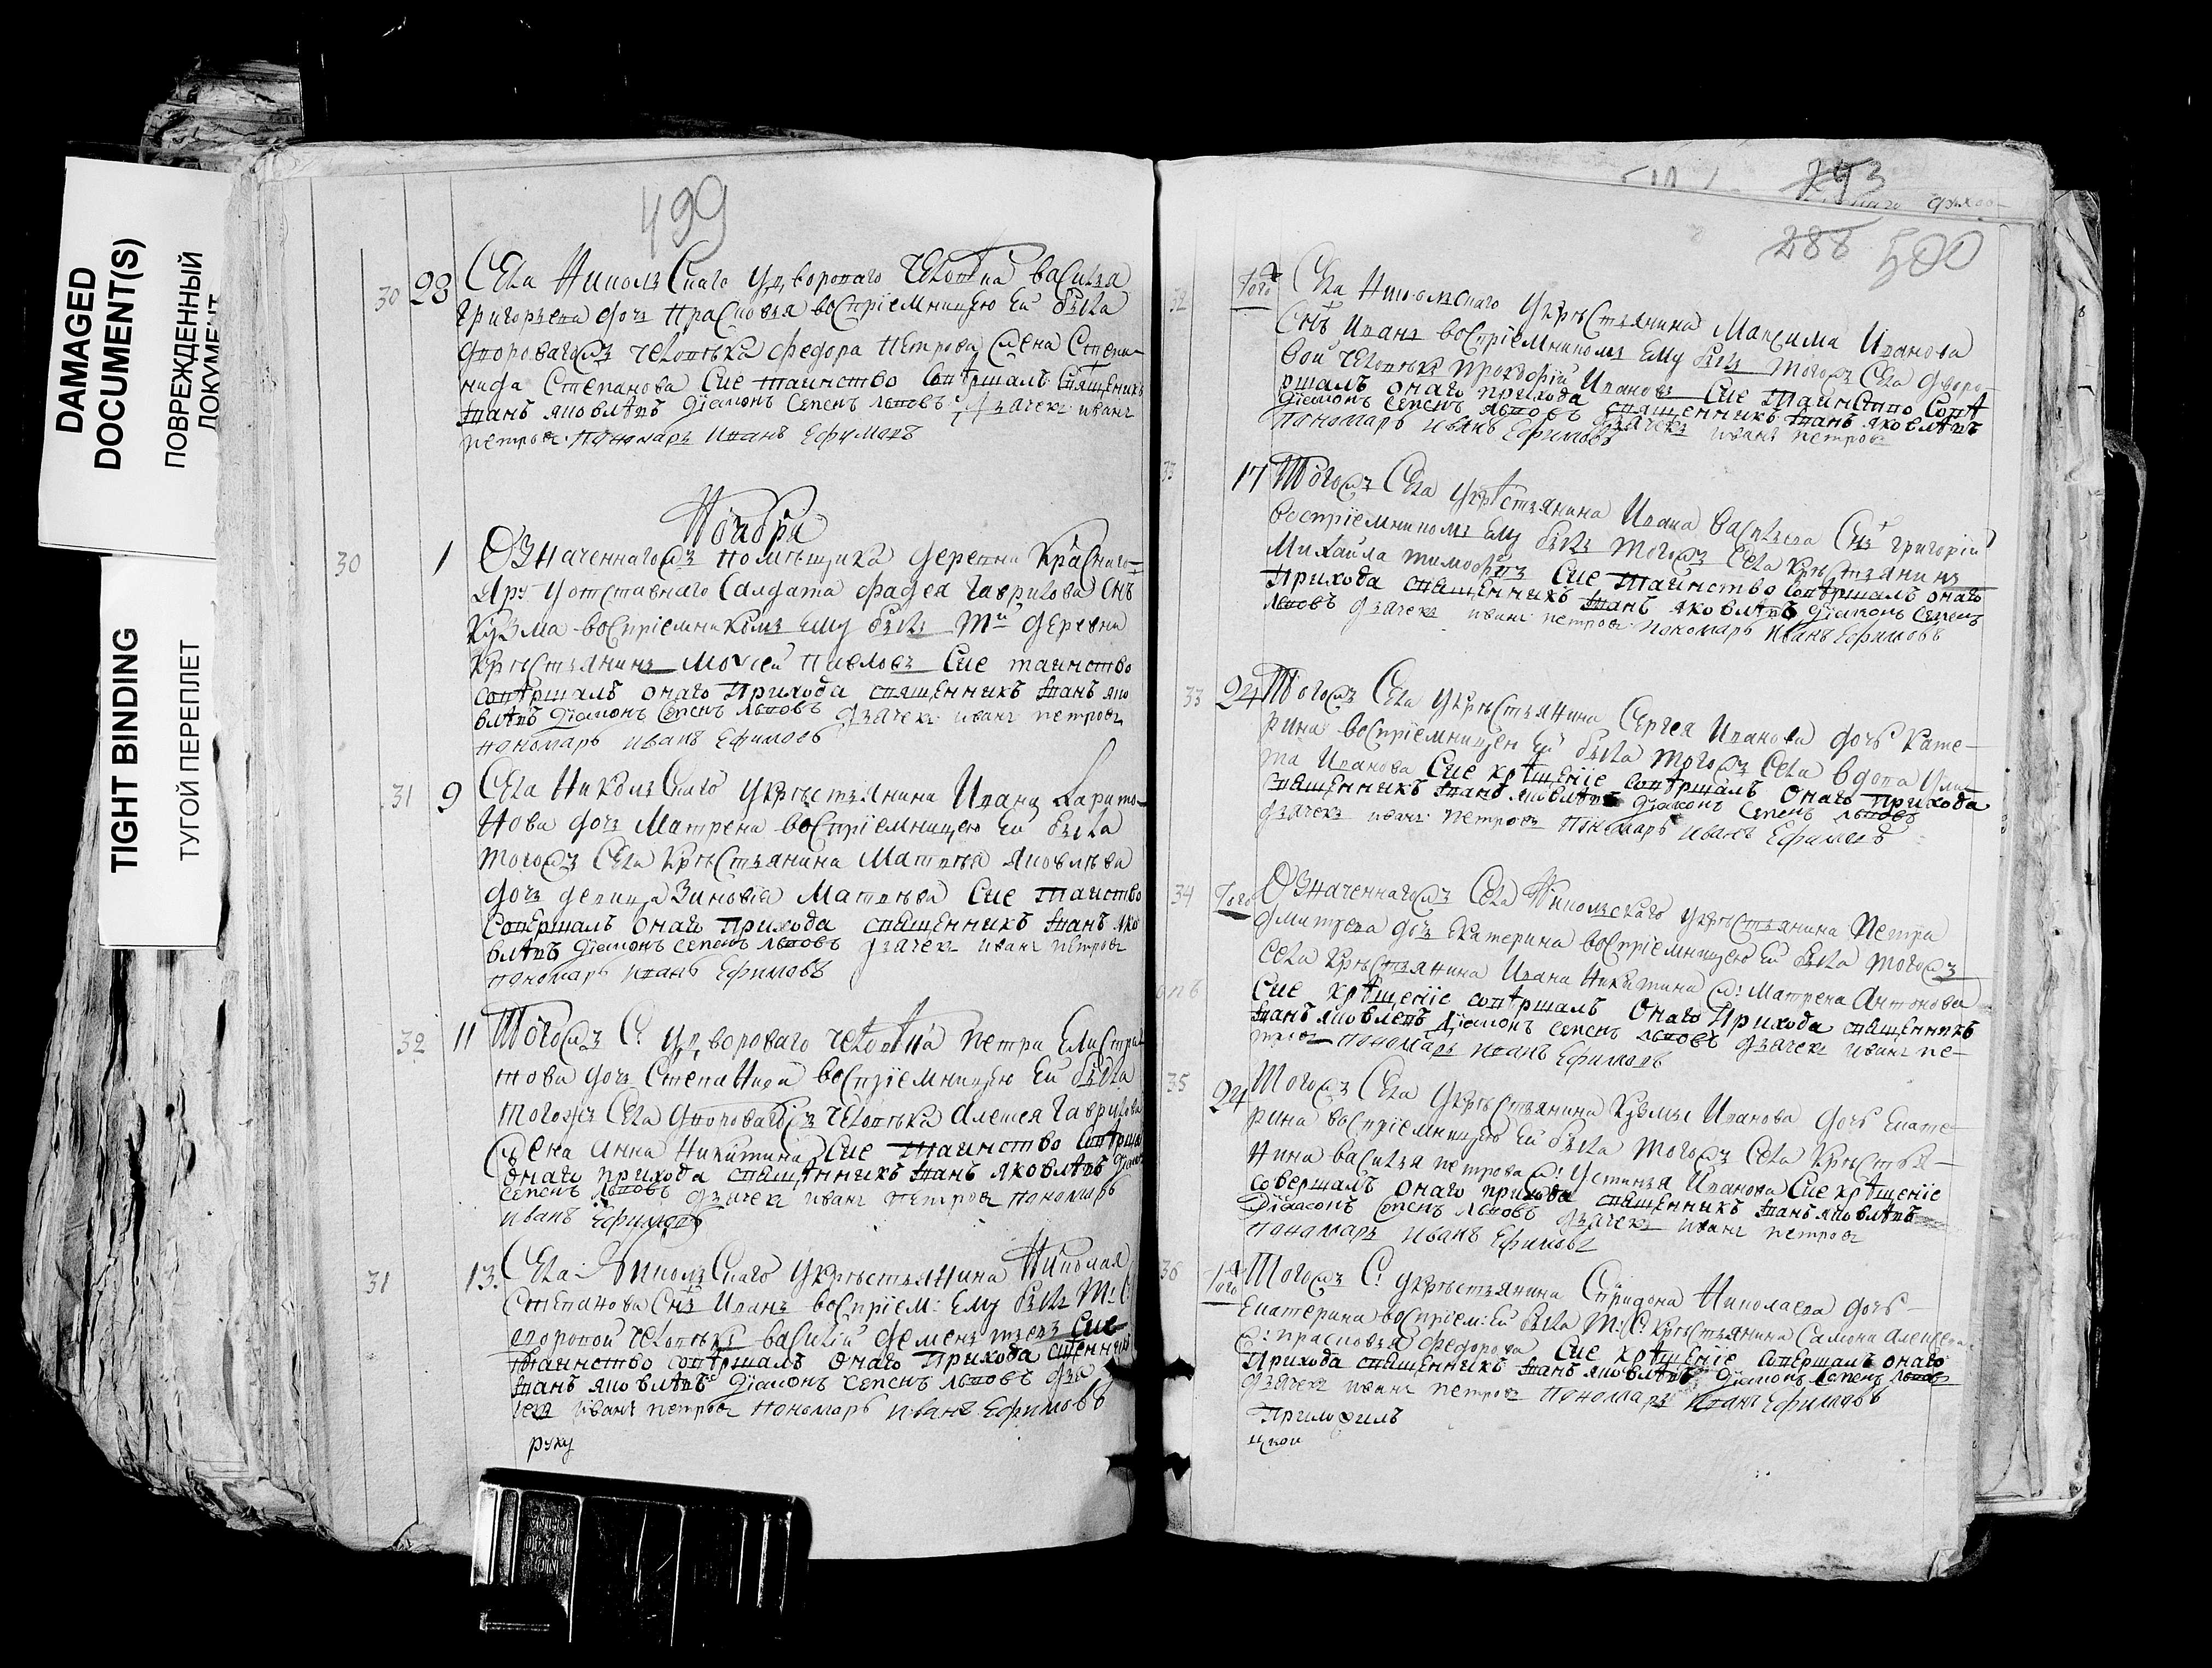 DAMAGED
DOCUMENT(S)
ПОВРЕЖДЕННЫЙ
ДОКУМЕНТ
TIGHT BINDING
ТУГОЙ ПЕРЕПЛЕТ
499
30 28 Села Николскаго у дворового человека василья
григорьева дочь Прасковья воспріемницею ей была
дворовагожъ человека федора Петрова жена Степа-
нида Степанова Сие таинство совершалъ священникъ
Іванъ яковлевъ діаконъ Семенъ львовъ дьячекъ иванъ
петровъ пономарь Иванъ Ефимовъ
Ноября
30 1 Означеннагожъ помещика деревни Краснаго
Яру у отставнаго Салдата фадея Гаврилова снъ
Кузма воспріемникомъ ему былъ тои деревни
крестьянинъ Моисей Павловъ Сие таинство
совершалъ онаго Прихода священникъ Іванъ яко
влевъ діаконъ Семенъ львовъ дьячекъ иванъ петровъ
пономарь иванъ Ефимовъ
31 9 Села Николскаго у крестьянина Ивана Харито-
нова дочь Матрена воспріемницею ей была
тогожъ Села крестьянина Матвея Яковлева
дочь девица Зиновья Матвева Сие таиство
Совершалъ онаго прихода священникъ Іванъ яко
влевъ діаконъ Семенъ львовъ дьячекъ иванъ петровъ
пономарь иванъ Ефимовъ
32 11 Тогожъ С: у двороваго человека Петра Елистра
това дочь Степанида воспріемницею ей была
тогожъ Села двороваго человека Алексея Гаврилова
жена Анна Никитина Сие таинство совершалъ
онаго прихода священникъ Іванъ яковлевъ діаконъ
Семенъ львовъ дьячекъ иванъ петровъ пономарь
иванъ Ефимовъ
31 13. Села Николскаго у крестьянина Николая
Степанова снъ Иванъ воспріем: ему былъ Т: С:
дворовой человекъ василій Сие
таинство совершалъ онаго Прихода священникъ
Іванъ яковлевъ діаконъ Семенъ львовъ дья
чекъ иванъ петровъ пономарь иванъ Ефимовъ
руку
293
288 500
32 того Села Николскаго у крестьянина Максима Иванова
снъ Иванъ воспріемникомъ ему былъ тогожъ Села дворо-
вой человекъ Прокофій Ивановъ Сие Таинство Сове
ршалъ онаго прихода священникъ Іванъ яковлевъ
діаконъ Семенъ львовъ дьячекъ иванъ петровъ
пономарь иванъ Ефимовъ
33 17 Тогожъ Села у крестьянина Ивана Васильева Снъ григорій
воспріемникомъ ему былъ тогожъ Села крестьянинъ
Михайла тимофеевъ Сие Таинство совершалъ онаго
Прихода священникъ Іванъ яковлевъ діаконъ Семенъ
львовъ дьячекъ иванъ петровъ пономарь Иванъ Ефимовъ
33 24 Тогожъ Села у крестьянина Сергея Иванова дочь Кате-
рина воспріемницею ей была тогожъ Села вдова Ули
та Иванова Сие крещеніе совершалъ Онаго прихода
священникъ Іванъ яковлевъ діаконъ Семенъ львовъ
дьячекъ иванъ петровъ пономарь иванъ Ефимовъ
34 того Означеннагожъ Села Николскаго у крестьянина Петра
дмитрева дочь Екатерина воспріемницею ей была тогожъ
Села крестьянина Ивана Никитина ж: Матрена Антонова
Сие крещеніе совершалъ Онаго Прихода священникъ
Іванъ яковлевъ діаконъ Семенъ львовъ дьячекъ иванъ пе-
тровъ пономарь иванъ Ефимовъ
35 24 Тогожъ Села у крестьянина Кузмы Иванова дочь Екате-
рина воспріемницею ей была тогожъ Села крестья-
нина василья петрова ж: Устинья Иванова Сие крещеніе
совершалъ онаго прихода священникъ Іванъ яковлевъ
Діаконъ Семенъ львовъ дьячекъ иванъ петровъ
пономарь иванъ Ефимовъ
36 того Тогожъ С: у крестьянина Спиридона Николаева дочь
Екатерина воспріем: ей была Т: С: крестьянина Самона алексеева
ж: прасковья федорова Сие крещеніе совершалъ онаго
Прихода священникъ Іванъ яковлевъ діаконъ Семенъ львовъ
дьячекъ иванъ петровъ пономарь иванъ Ефимовъ
Приложилъ